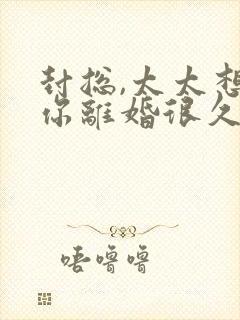 封总,太太想
你離婚很久
唔噜噜